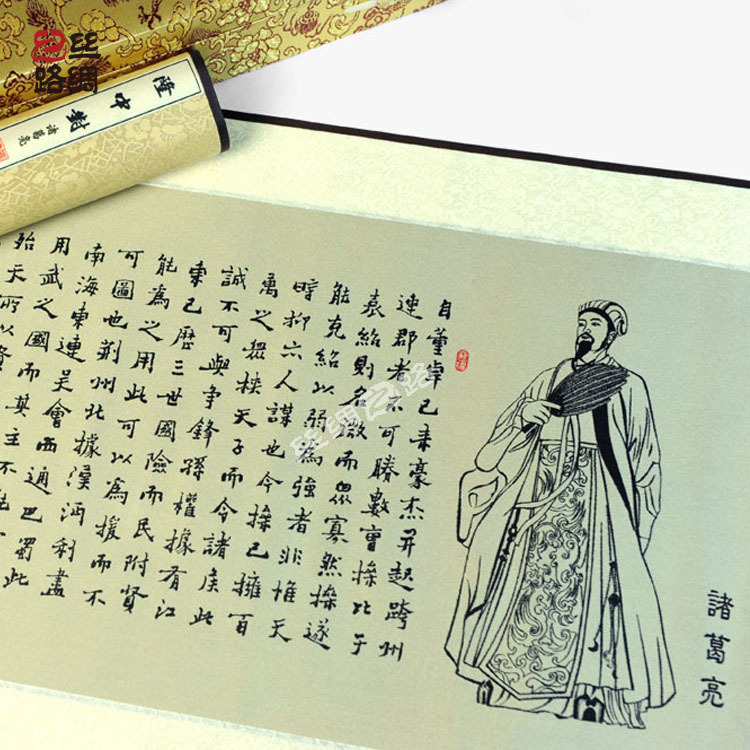 絲綢之路
隆中對
諸葛亮
自董卓已來豪杰并起跨州
連郡者不可勝數曹操比于
袁紹則名微而眾寡然操遂
能克紹以弱為強者非惟天
時抑亦人謀也今操已擁百
萬之眾挾天子而令諸侯此
誠不可與爭鋒孫權據有江
東已歷三世國險而民附賢
能為之用此可以為援而不
可圖也荊州北據漢沔利盡
南海東連吳會西通巴蜀此
用武之國而其主不能
殆天所以資
諸葛亮
絲綢之路